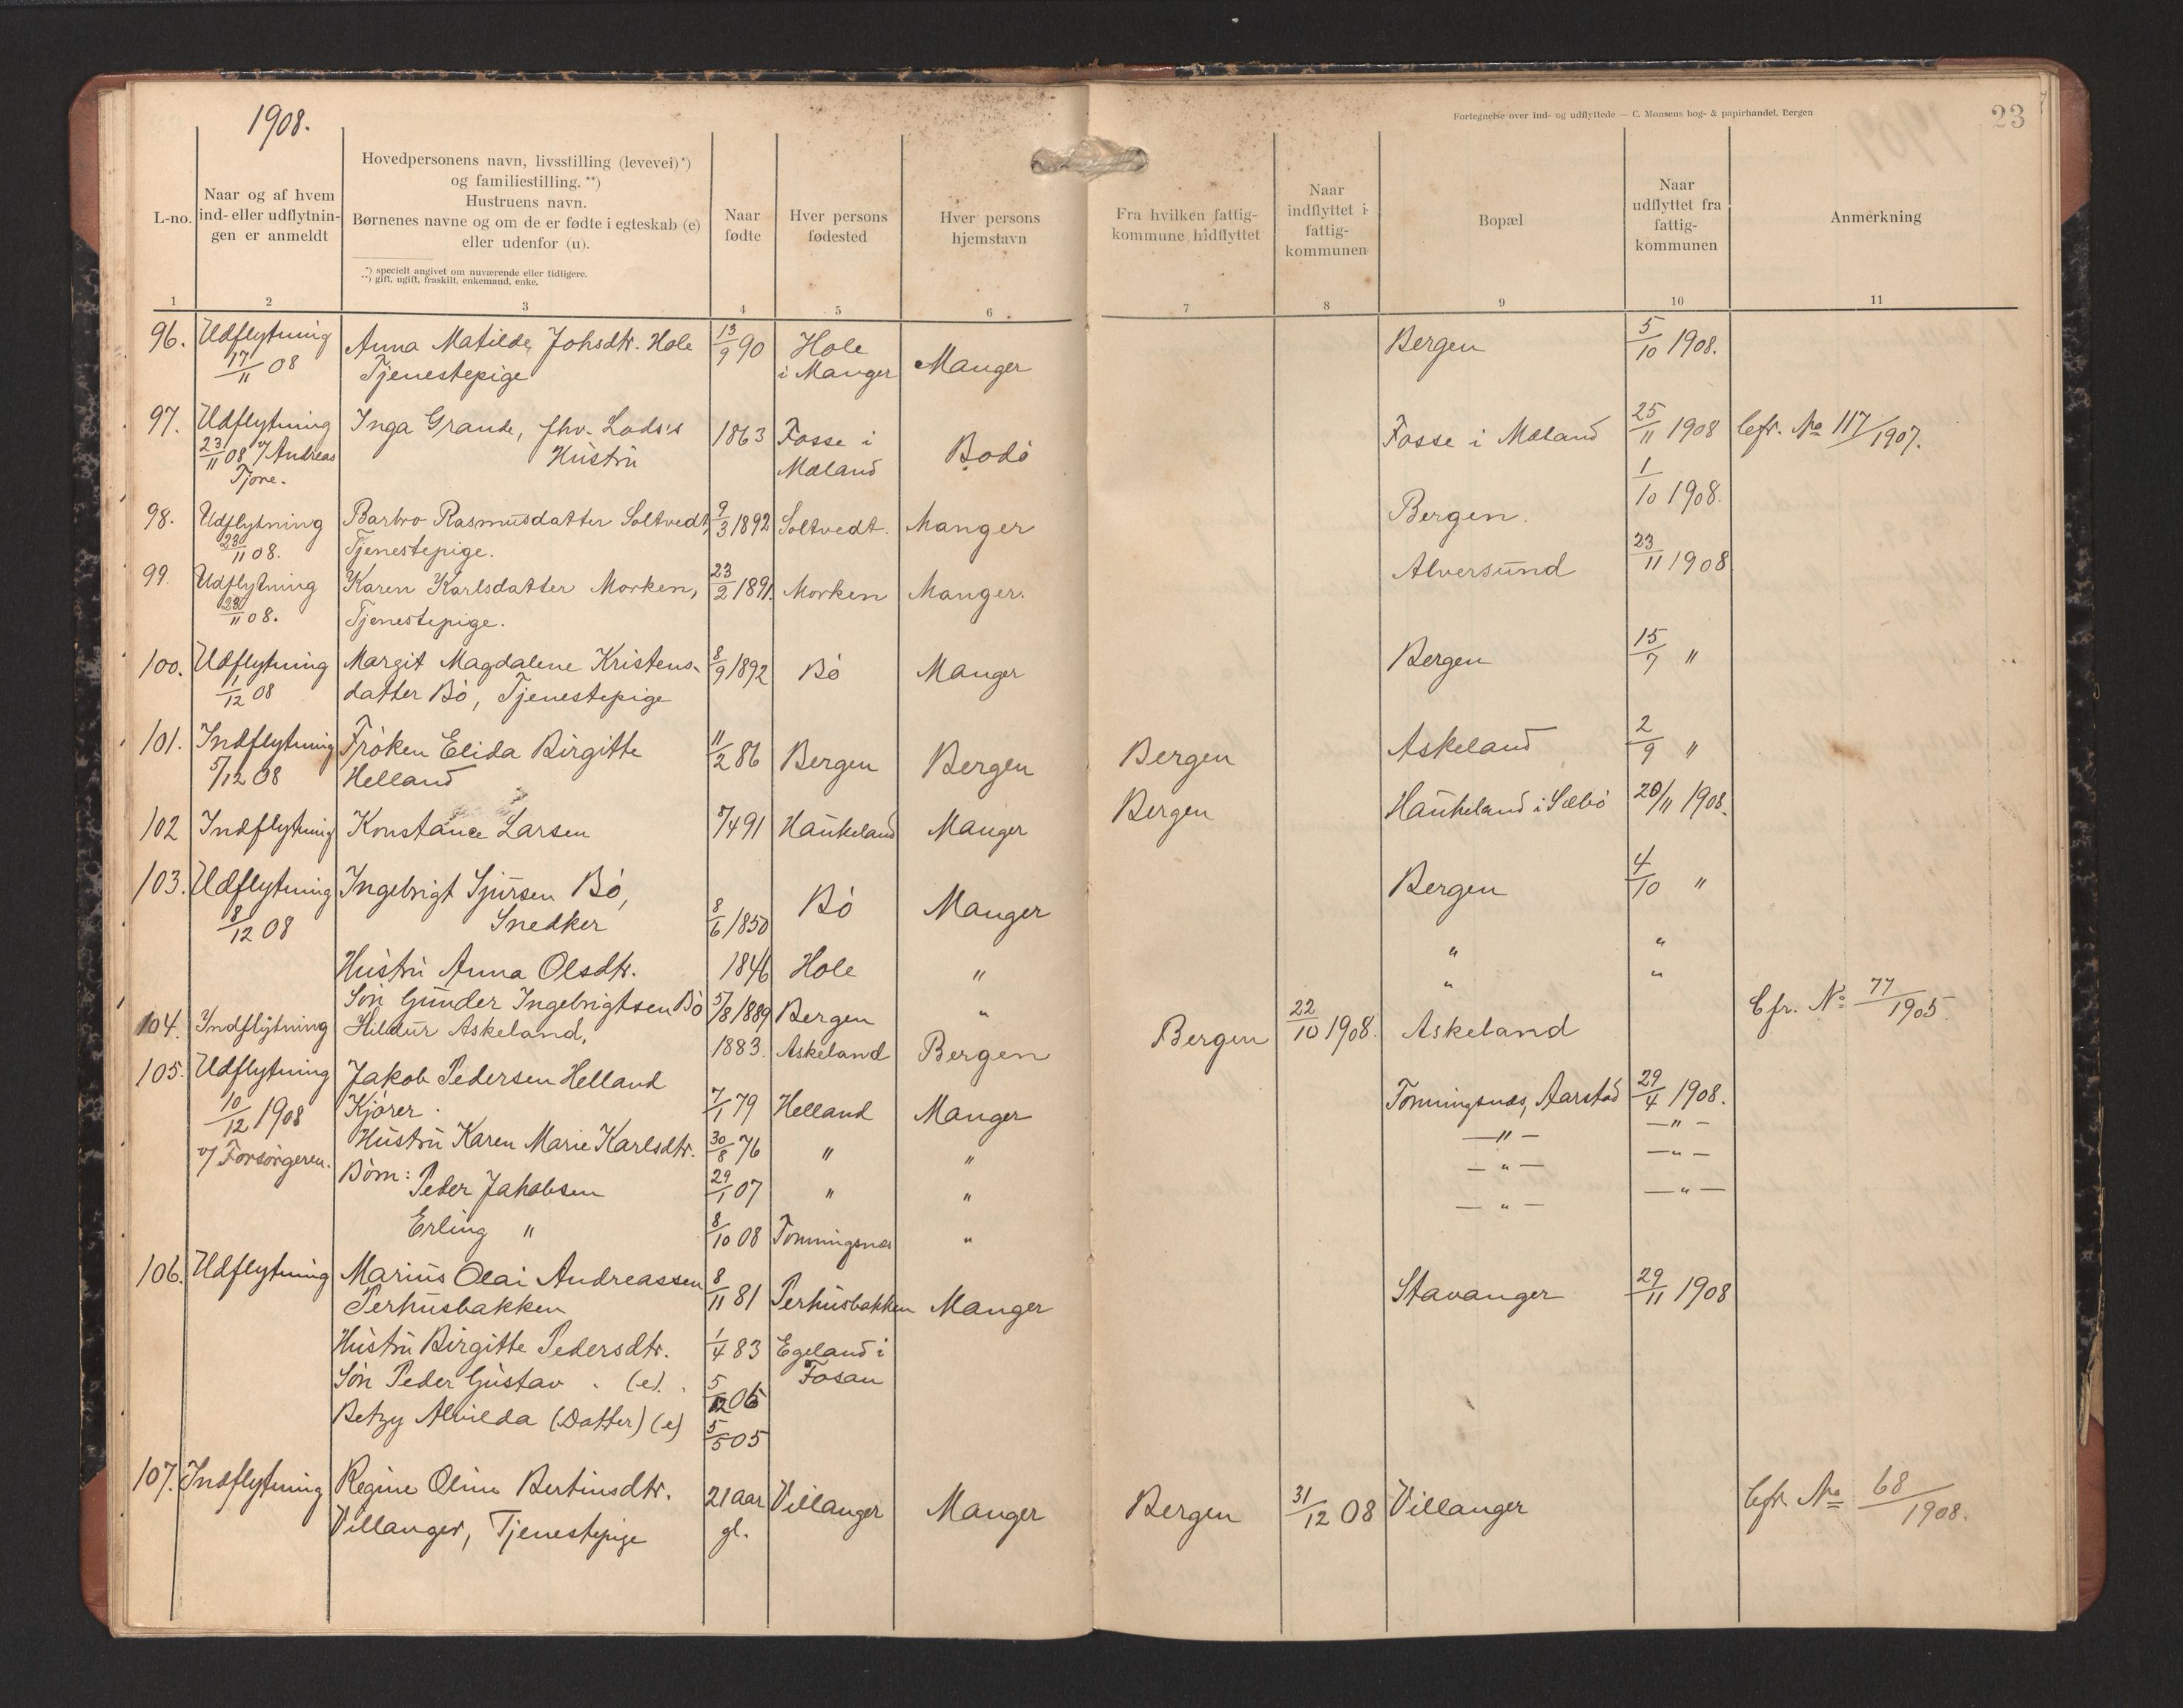 1908.
Fortegnelse over ind- og udflyttede — C. Monsens bog- & papirhandel, Bergen
23
L-no.
Naar og af hvem ind- eller udflytnin-gen er anmeldt
Hovedpersonens navn, livsstilling (levevei)*)
og familiestilling. **)
Hustruens navn.
Børnenes navne og om de er fødte i egteskab (e)
eller udenfor (u).
*) specielt angivet om nuværende eller tidligere.
**) gift, ugift, fraskilt, enkemand, enke.
Naar fødte
Hver persons fødested
Hver persons hjemstavn
Fra hvilken fattig-kommune hidflyttet
Naar indflyttet i fattig-kommunen
Bopæl
Naar udflyttet fra fattig-kommunen
Anmerkning
1 2 3 4 5 6 7 8 9 10 11
96. Udflytning Anna Matilde Johsdtr. Hole 13/9 90 Hole Bergen 5/10 1908.
17/11 08 Tjenestepige i Manger Manger
97. Udflytning Inga Grande, fhv. Lods's 1863 Fosse i Bodö Fosse i Mæland 25/11 1908 Cfr. No 117/1907.
23/11 08 v/ Andreas Hustru Mæland
Tjore.
98. Udflytning Barbro Rasmusdatter Soltvedt, 9/3 1892 Soltvedt. Manger Bergen. 1/10 1908.
23/11 08. Tjenestepige.
99. Udflytning Karen Karlsdatter Morken, 23/2 1891. Morken Manger. Alversund 23/11 1908
23/11 08. Tjenestepige.
100. Udflytning Margit Magdalene Kristens- 8/9 1892 Bö Manger Bergen 15/7 "
1/12 08 datter Bö, Tjenestepige
101. Indflytning Fröken Elida Birgitte 11/2 86 Bergen Bergen Bergen Askeland 2/9 "
5/12 08 Helland
102 Indflytning Konstance Larsen 5/4 91 Haukeland Manger Bergen Haukeland i Sæbö 20/11 1908.
103. Udflytning Ingebrigt Sjursen Bö, Bö Manger Bergen 4/10 "
8/12 08 Snedker 8/6 1850
Hustru Anna Olsdtr. 1846 Hole " " "
Sön Gunder Ingebrigtsen Bö 5/8 1889 Bergen " " " Cfr. No 77/1905.
104. Indflytning Hildur Askeland. 1883. Askeland Bergen Bergen 22/10 1908. Askeland
105. Udflytning Jakob Pedersen Helland
10/12 1908 Kjörer. 7/1 79 Helland Manger Tonningsnæs, Aarstad 29/4 1908.
v/ Forsörgeren. Hustru Karen Marie Karlsdtr. 30/8 76 " " — " — — " —
Börn: Peder Jakobsen 29/1 07 " " — " — — " —
Erling " 8/10 08 Tonningsnæs " — " — — " —
106. Udflytning Marius Olai Andreassen 8/11 81 Perhusbakken Manger Stavanger 29/11 1908
Perhusbakken
Hustru Birgitte Pedersdtr. 1/4 83 Egeland i
Sön Peder Gustav . (e). 5/12 06 Fosan
Betzy Alvilda (Datter) (e) 5/5 05
107. Indflytning Regine Oline Bertinsdtr. 21 aar Villanger Manger Bergen 31/12 08 Villanger Cfr. No 68/1908.
Villanger, Tjenestepige gl.